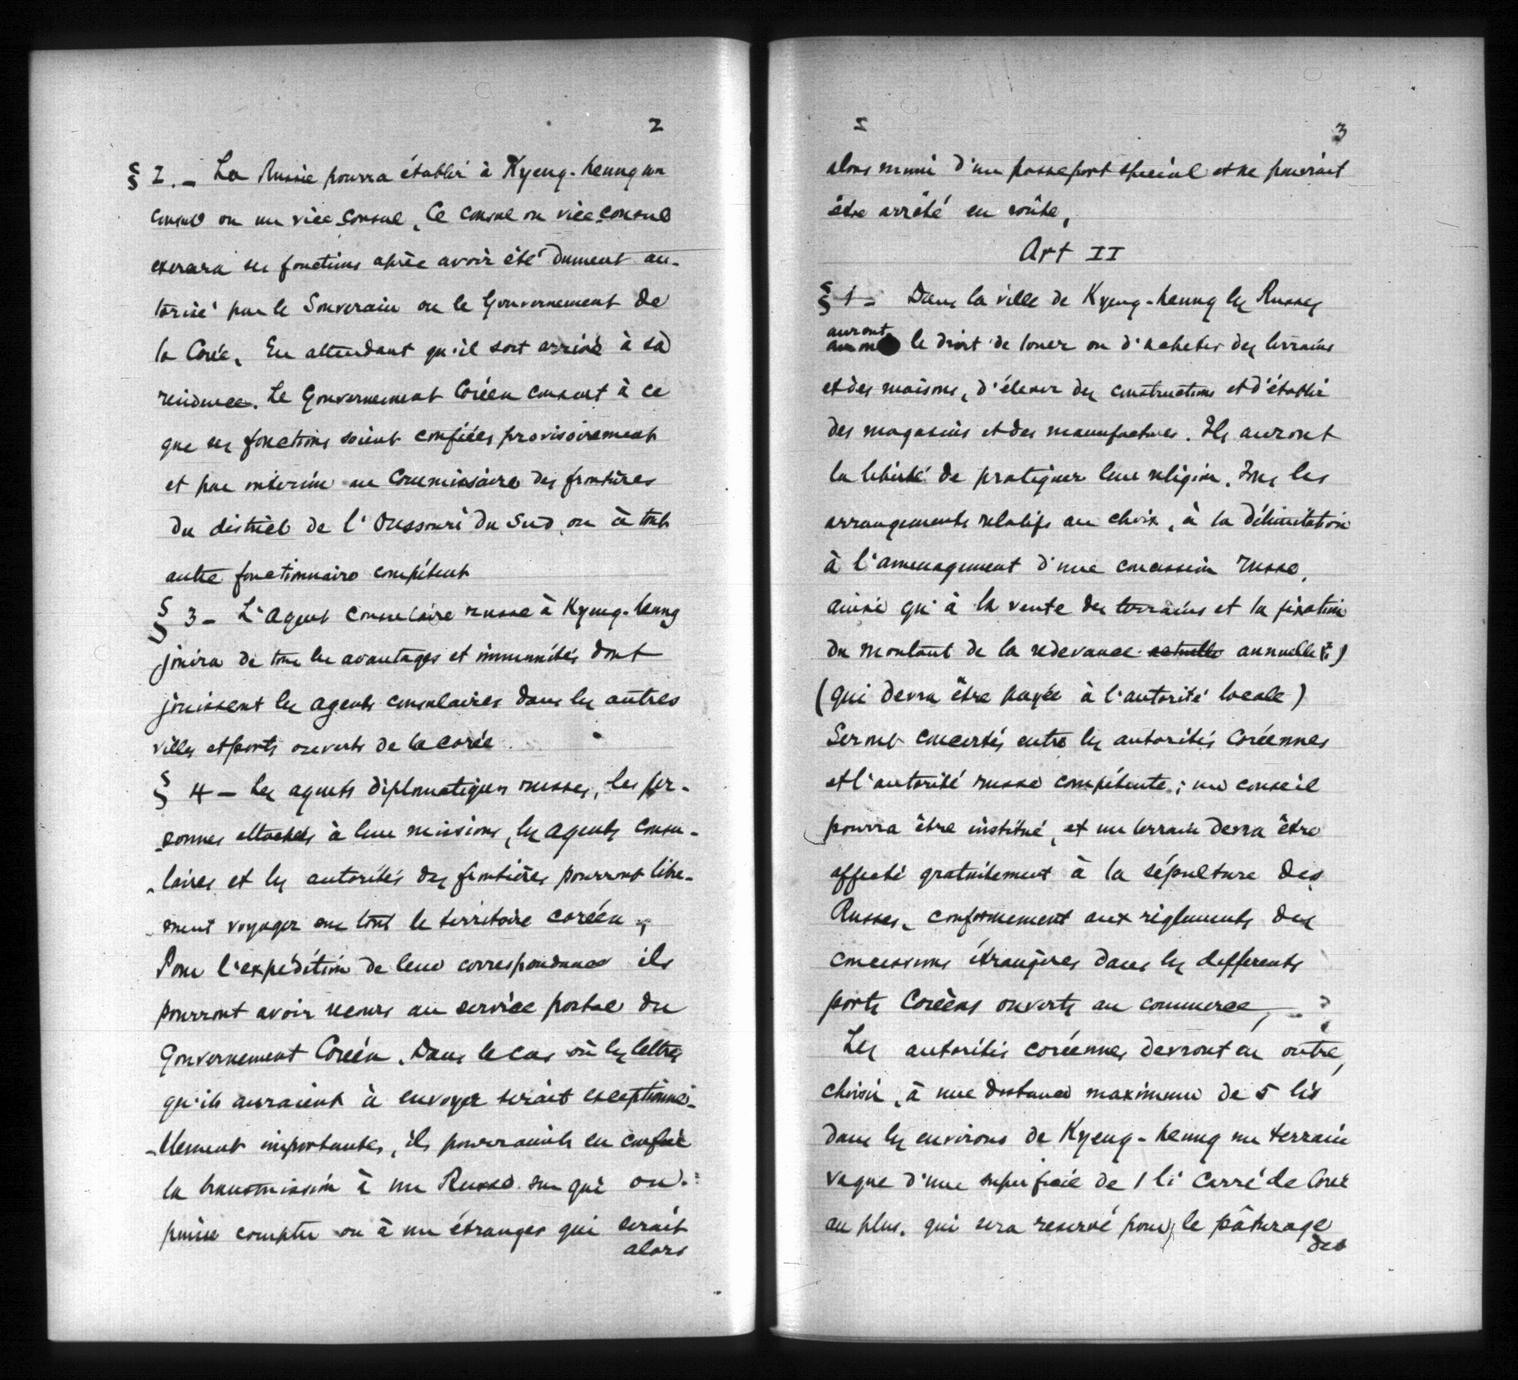 2
§ 2. — La Russie pourra établir à Kyeng-heung un
consul ou un vice consul. Ce consul ou vice consul
exercera ses fonctions après avoir été dument au-
torisé par le Souverain ou le Gouvernement de
la Corée. En attendant qu'il soit arrivé à sa
residence. Le Gouvernement Coréen consent à ce
que ses fonctions soient confiées provisoirement
et par interim au Commissaire des frontières
du district de l'Oussouri du Sud ou à tout
autre fonctionnaire compétent
§ 3 — L'Agent Consulaire russe à Kyeng-heung
jouira de tous les avantages et immunités dont
jouissent les agents consulaires dans les autres
villes et ports ouverts de la corée
§ 4 — Les agents diplomatiques russes, les per-
sonnes attachées à leur missions, les agents consu-
laires et les autorités des frontières pourront libre-
ment voyager sur tout le territoire coréen,
Pour l'expédition de leur correspondance ils
pourront avoir recours au service postal du
Gouvernement Coréen. Dans le cas où les lettres
qu'ils auraient à envoyer serait exceptionne-
-llement importantes, ils pourraient en confier
la transmission à un Russe sur qui on
puisse compter ou à un étranger qui serait
alors
2
3
alors muni d'un passeport spécial et ne pourrait
être arrêté en route,
Art II
§ 1 — Dans la ville de Kyeng-heung les Russes
auront
le droit de louer ou d'acheter des terrains
et des maisons, d'élever des constructions et d'établir
des magasins et des manufactures. Ils auront
la liberté de pratiquer leur religion. Tous les
arrangements relatifs au choix, à la délimitation
à l'amenagement d'une concession russe,
ainsi qu'à la vente des terrains et la fixation
du montant de la redevance actuelle annuelle
(qui devra être payée à l'autorité locale)
Seront concertés entre les autorités coréennes
et l'autorité russe compétente; un conseil
pourra être institué, et un terrain devra être
affecté gratuitement à la sépulture des
Russes, conformement aux règlements des
concessions étrangères dans les differents
ports Coréens ouverts au commerce, ?
Les autorités coréennes devront en outre,
choisir, à une distance maximum de 5 lis
dans les environs de Kyeng-heung un terrain
vague d'une superficie de 1 li carré de Corée
au plus. qui sera reservé pour le pâturage
des